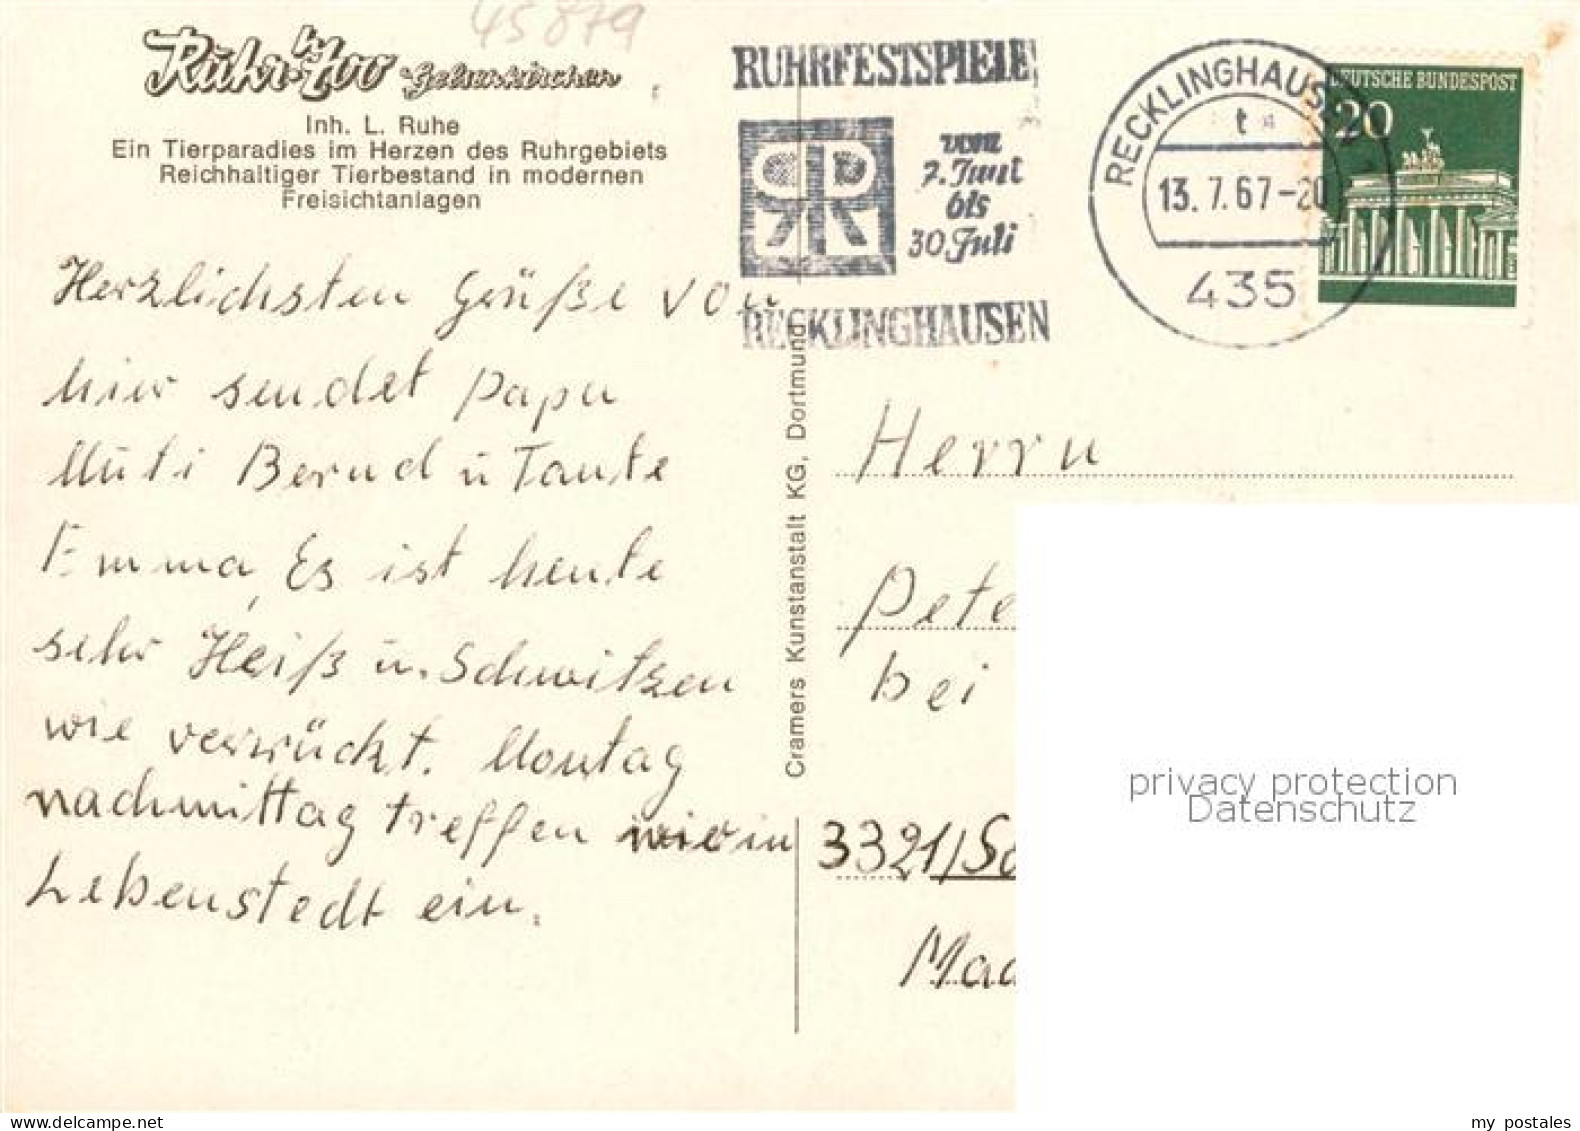 45879
Ruhr-Zoo Gelsenkirchen
Inh. L. Ruhe
Ein Tierparadies im Herzen des Ruhrgebiets
Reichhaltiger Tierbestand in modernen
Freisichtanlagen
Herzlichsten Grüße von
hier sendet Papa
Muti Bernd u Tante
Emma, Es ist heute
sehr Heiß u. Schwitzen
wie verrückt. Montag
nachmittag treffen wir in
Lebenstedt ein.
Cramers Kunstanstalt KG, Dortmund
RUHRFESTSPIELE
vom
7. Juni
bis
30. Juli
RECKLINGHAUSEN
RECKLINGHAUSEN
t
13.7.67-20
435
DEUTSCHE BUNDESPOST
20
Herrn
Pete
bei
3321/Sa
Mad
privacy protection
Datenschutz
my postales